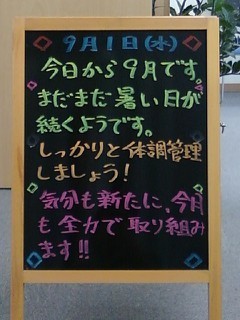 9月1日(水)
今日から9月です。
まだまだ暑い日が
続くようです。
しっかりと体調管理
しましょう!
気分も新たに、今月
も全力で取り組み
ます!!